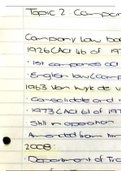 Topic 2 Compan
Company Law bac
1926 (Act 46 of 19
• 1st companies act
• English law (comp
1963 Van Wyk de V
• Consolidate and
• 1973 (Act 61 of 197
• Still in operation
• Amended from tim
2008:
• Department of Tra